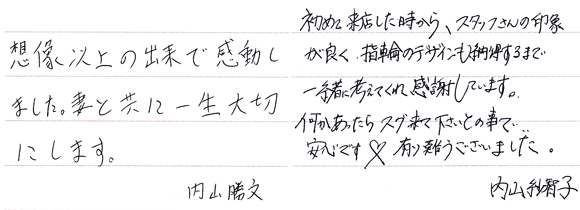 想像以上の出来で感動し
ました。妻と共に一生大切
にします。
内山勝文
初めて来店した時から、スタッフさんの印象
が良く、指輪のデザインも納得するまで
一緒に考えてくれ、感謝しています。
何かあったらスグ来て下さいとの事で…
安心です♡ 有り難うございました。
内山紗智子